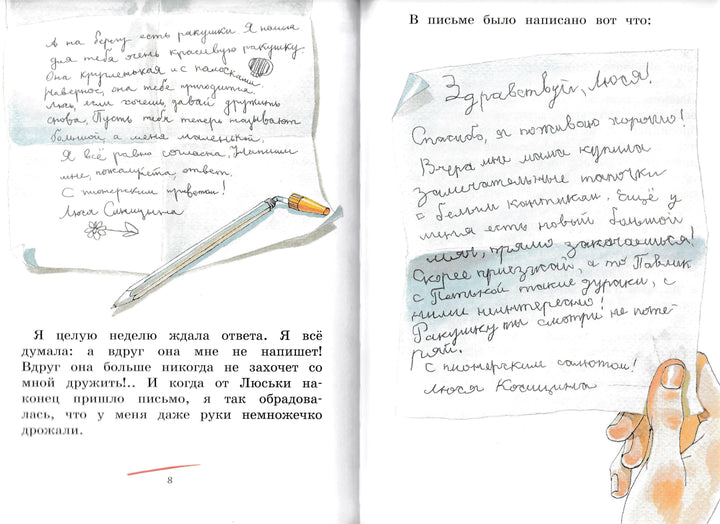 А на берегу есть ракушки. Я нашла
для тебя очень красивую ракушку.
Она кругленькая и с полосками.
Наверное, она тебе пригодится
Люсь, если хочешь, давай дружить
снова. Пусть тебя теперь называют
большой, а меня маленькой.
Я всё равно согласна. Напиши
мне, пожалуйста, ответ.
С пионерским приветом!
Люся Синицина
Я целую неделю ждала ответа. Я всё
думала: а вдруг она мне не напишет!
Вдруг она больше никогда не захочет со
мной дружить!.. И когда от Люськи на-
конец пришло письмо, я так обрадова-
лась, что у меня даже руки немножечко
дрожали.
8
В письме было написано вот что:
Здравствуй, Люся!
Спасибо, я поживаю хорошо!
Вчера мне мама купила
замечательные тапочки
с белым кантиком. Ещё у
меня есть новый большой
мяч, прямо закачаешься!
Скорее приезжай, а то Павлик
с Петькой такие дураки, с
ними неинтересно!
Ракушку ты смотри не поте-
ряй.
С пионерским салютом!
Люся Косицина